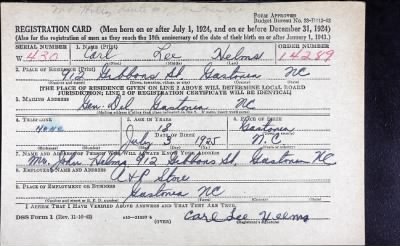 FORM APPROVED
REGISTRATION CARD (Men born on or after July 1, 1924, and on or before December 31, 1924)
(Also for the registration of men as they reach the 18th anniversary of the date of their birth on or after January 1, 1943.)
SERIAL NUMBER 1. NAME (Print) ORDER NUMBER
W 430 Carl Lee Helms 14289
(First) (Middle) (Last)
2. PLACE OF RESIDENCE (Print)
912 Gibbons St, Gastonia NC
[THE PLACE OF RESIDENCE GIVEN ON LINE 2 ABOVE WILL DETERMINE LOCAL BOARD
JURISDICTION; LINE 2 OF REGISTRATION CERTIFICATE WILL BE IDENTICAL]
3. MAILING ADDRESS
Gen Del Gastonia NC
4. TELEPHONE 5. AGE IN YEARS 6. PLACE OF BIRTH
none 18 Gastonia
DATE OF BIRTH
July 3 1925 N.C
7. NAME AND ADDRESS OF PERSON WHO WILL ALWAYS KNOW YOUR ADDRESS
John Helms 912 Gibbons St, Gastonia NC
8. EMPLOYER'S NAME AND ADDRESS
A&P Store
9. PLACE OF EMPLOYMENT OR BUSINESS
Gastonia NC
I AFFIRM THAT I HAVE VERIFIED ABOVE ANSWERS AND THAT THEY ARE TRUE.
DSS Form 1 (Rev. 11-16-42) (OVER) Carl Lee Helms